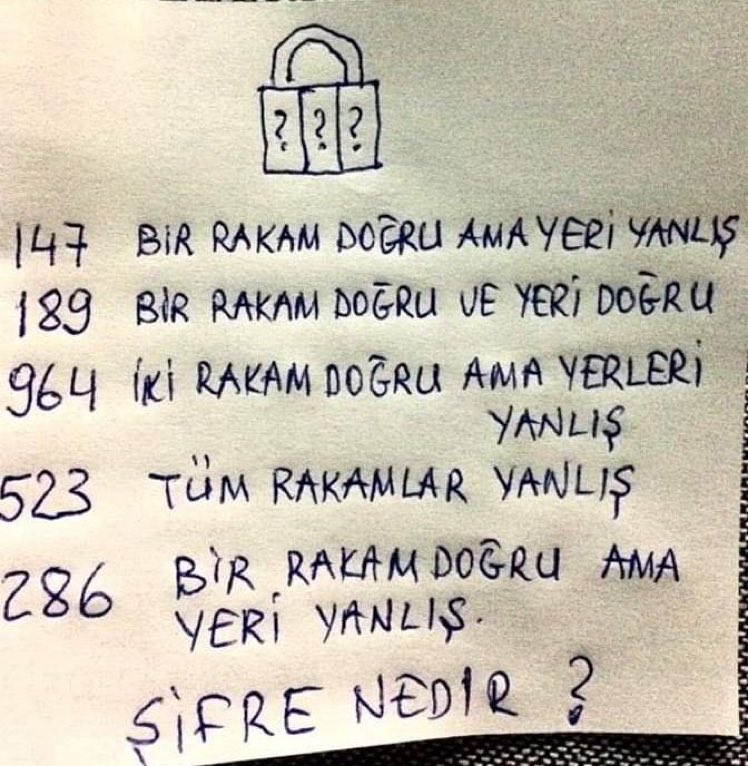 ? ? ?
147 BİR RAKAM DOĞRU AMA YERİ YANLIŞ
189 BİR RAKAM DOĞRU VE YERİ DOĞRU
964 İKİ RAKAM DOĞRU AMA YERLERİ
YANLIŞ
523 TÜM RAKAMLAR YANLIŞ
286 BİR RAKAM DOĞRU AMA
YERİ YANLIŞ.
ŞİFRE NEDİR ?